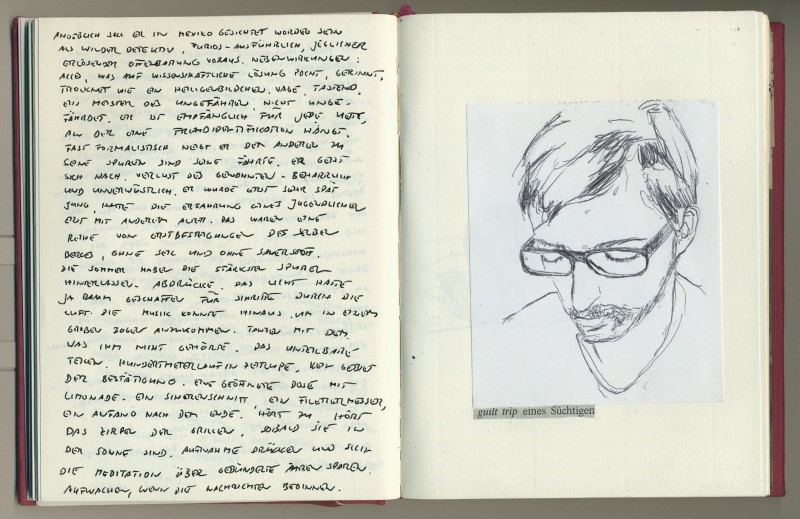 ANGEBLICH SOLL ER IN MEXIKO GESICHTET WORDEN SEIN
ALS WILDER DETEKTIV, FURIOS-AUSFÜHRLICH, JEGLICHER
ERLÖSENDER OFFENBARUNG VORAUS. NEBENWIRKUNGEN:
ALLES, WAS AUF WISSENSCHAFTLICHE LÖSUNG POCHT, GERINNT,
TROCKNET WIE EIN HEILIGENBILDCHEN. VAGE, TASTEND,
EIN MEISTER DES UNGEFÄHREN, NICHT UNGE-
FÄHRDET. ER IST EMPFÄNGLICH FÜR JEDE
AN DER EINE FREMDIDENTIFIKATION HÄNGT.
FAST FORMALISTISCH NEIGT ER DEM ANDEREN ZU
SEINE SPUREN SIND SEINE FÄHRTE. ER GEHT
SICH NACH. VERLUST DES GEWOHNTEN - BEHARRLICH
UND UNVERWÜSTLICH. ER WURDE ERST SEHR SPÄT
JUNG, HATTE DIE ERFAHRUNG EINES JUGENDLICHEN
ERST MIT ANDEREM ALTER. DAS WAREN EINE
REIHE VON ERSTBESTEIGUNGEN DES SELBEN
BERGES, OHNE SEIL UND OHNE SAUERSTOFF.
DIE SOMMER HABEN DIE STÄRKSTEN SPUREN
HINTERLASSEN. ABDRÜCKE. DAS LICHT HATTE
JA RAUM GESCHAFFEN FÜR SCHRITTE DURCH DIE
LUFT. DIE MUSIK KONNTE HINAUS, UM IN EINEM
GROßEN BOGEN ANZUKOMMEN. TANZEN MIT DEM,
WAS IHM NICHT GEHÖRTE. DAS UNTEILBARE
TEILEN. HUNDERTMETERLAUF IN ZEITLUPE. KEIN GEBIET
DER BESTÄTIGUNG. EINE GEÖFFNETE DOSE MIT
LIMONADE. EIN SCHERENSCHNITT, EIN FILETIERMESSER,
EIN ANFANG NACH DEM ENDE. HÖRT ZU, HÖRT
DAS ZIRPEN DER GRILLEN, SOBALD SIE IN
DER SONNE SIND. AUFNAHME DRÜCKEN UND SICH
DIE MEDITATION ÜBER GEBÜNDELTE ÄHREN SPAREN.
AUFWACHEN, WENN DIE NACHRICHTEN BEGINNEN.
guilt trip eines Süchtigen